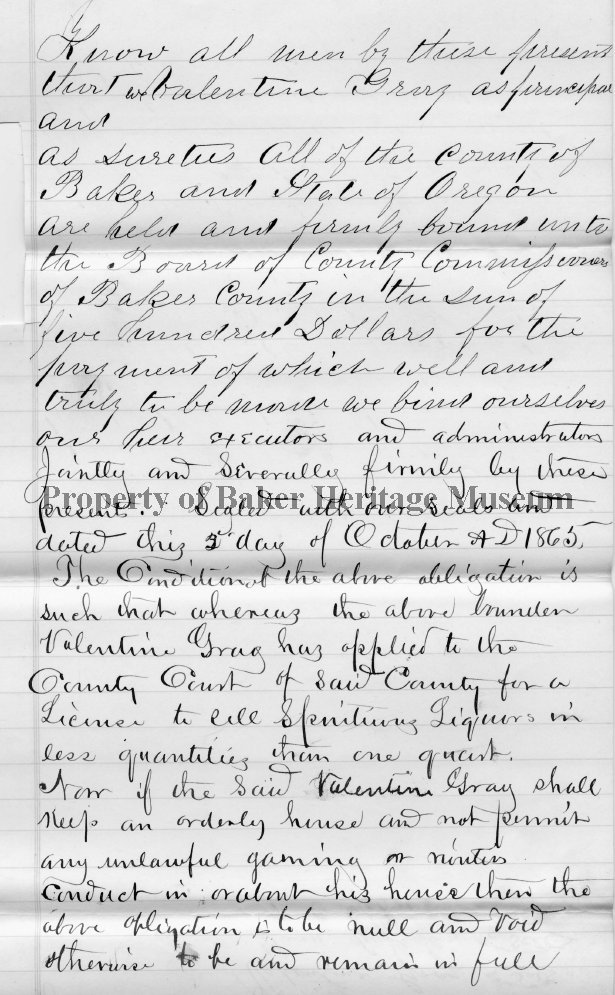 Know all men by these present
that we Valentine Gray as principal
and
as sureties All of the County of
Baker and State of Oregon
are held and firmly bound unto
the Board of County Commissioners
of Baker County in the sum of
five hundred Dollars for the
payment of which well and
truly to be made we bind ourselves
our heir executors and administrators
Jointly and Severally firmily by these
Property of Baker Heritage Museum
present. Sealed with our seals an
dated this 5 day of October A D 1865,
The Condition of the above obligation is
such that whereas the above bounden
Valentine Gray has applied to the
County Court of Said County for a
License to sell Spiritious Liquors in
less quantities than one quart.
Now if the Said Valentine Gray shall
Keep an orderly house and not permit
any unlawful gaming or riotus
Conduct in or about his house then the
above obligation is to be null and Void
otherwise to be and remain in full